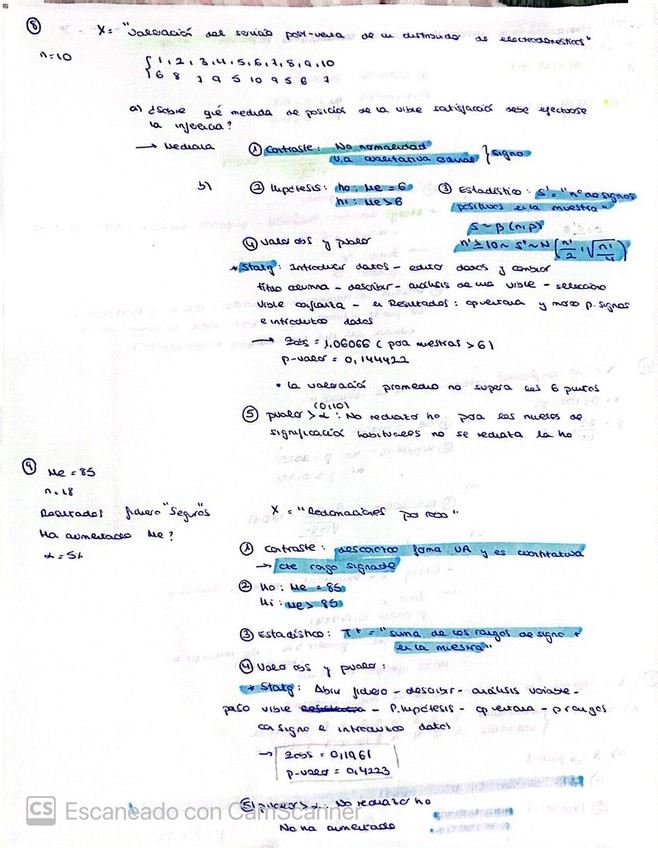 ⑧ X = "Valoración del servicio post-venta de un distribuidor de electrodomésticos"
n=10 { 1, 2, 3, 4, 5, 6, 7, 8, 9, 10
6 8 7 9 5 10 9 5 6 7
a) ¿Sobre qué medida de posición de la vible satisfacción debe efectuarse
la inferencia?
→ Mediana ① Contraste: No normalidad
v.a cualitativa ordinal } signo
b) ② Hipótesis: h0: Me = 6 ③ Estadístico: S' = "nº de signos
h1: Me > 6 positivos en la muestra"
S ~ β(n,p)
④ Valor obs y pvalor n' ≥ 10 ~ S' ~ N(n'/2, √n'/4)
* Statg: Introducir datos - editar datos y cambiar
título columna - describir - análisis de una vible - selecciono
vible conjunta - en Resultados: op. ventana y marco p. signos
e introduzco datos
→ Zobs = 1,06066 (para muestras > 6)
p-valor = 0,144422
• La valoración promedio no supera los 6 puntos
(0,10)
⑤ pvalor > α: No rechazo h0 para los niveles de
significación habituales no se rechaza la h0
⑨ Me = 85
n = 18
Resultados fichero "Seguros" X = "Reclamaciones por robo"
Ha aumentado Me?
α = 5% ① Contraste: desconozco forma, VA y es cuantitativa
→ cte rango signado
② H0: Me = 85
H1: Me > 85
③ Estadístico: T+ = "suma de los rangos de signo +
en la muestra"
④ Valor obs y pvalor:
* Statg: Abrir fichero - describir - análisis variable -
paso vible - P.Hipótesis - op ventana - p rangos
con signo e introduzco datos
→ Zobs = 0,1961
p-valor = 0,4223
⑤ pvalor > α: No rechazo h0
No ha aumentado
CS Escaneado con CamScanner